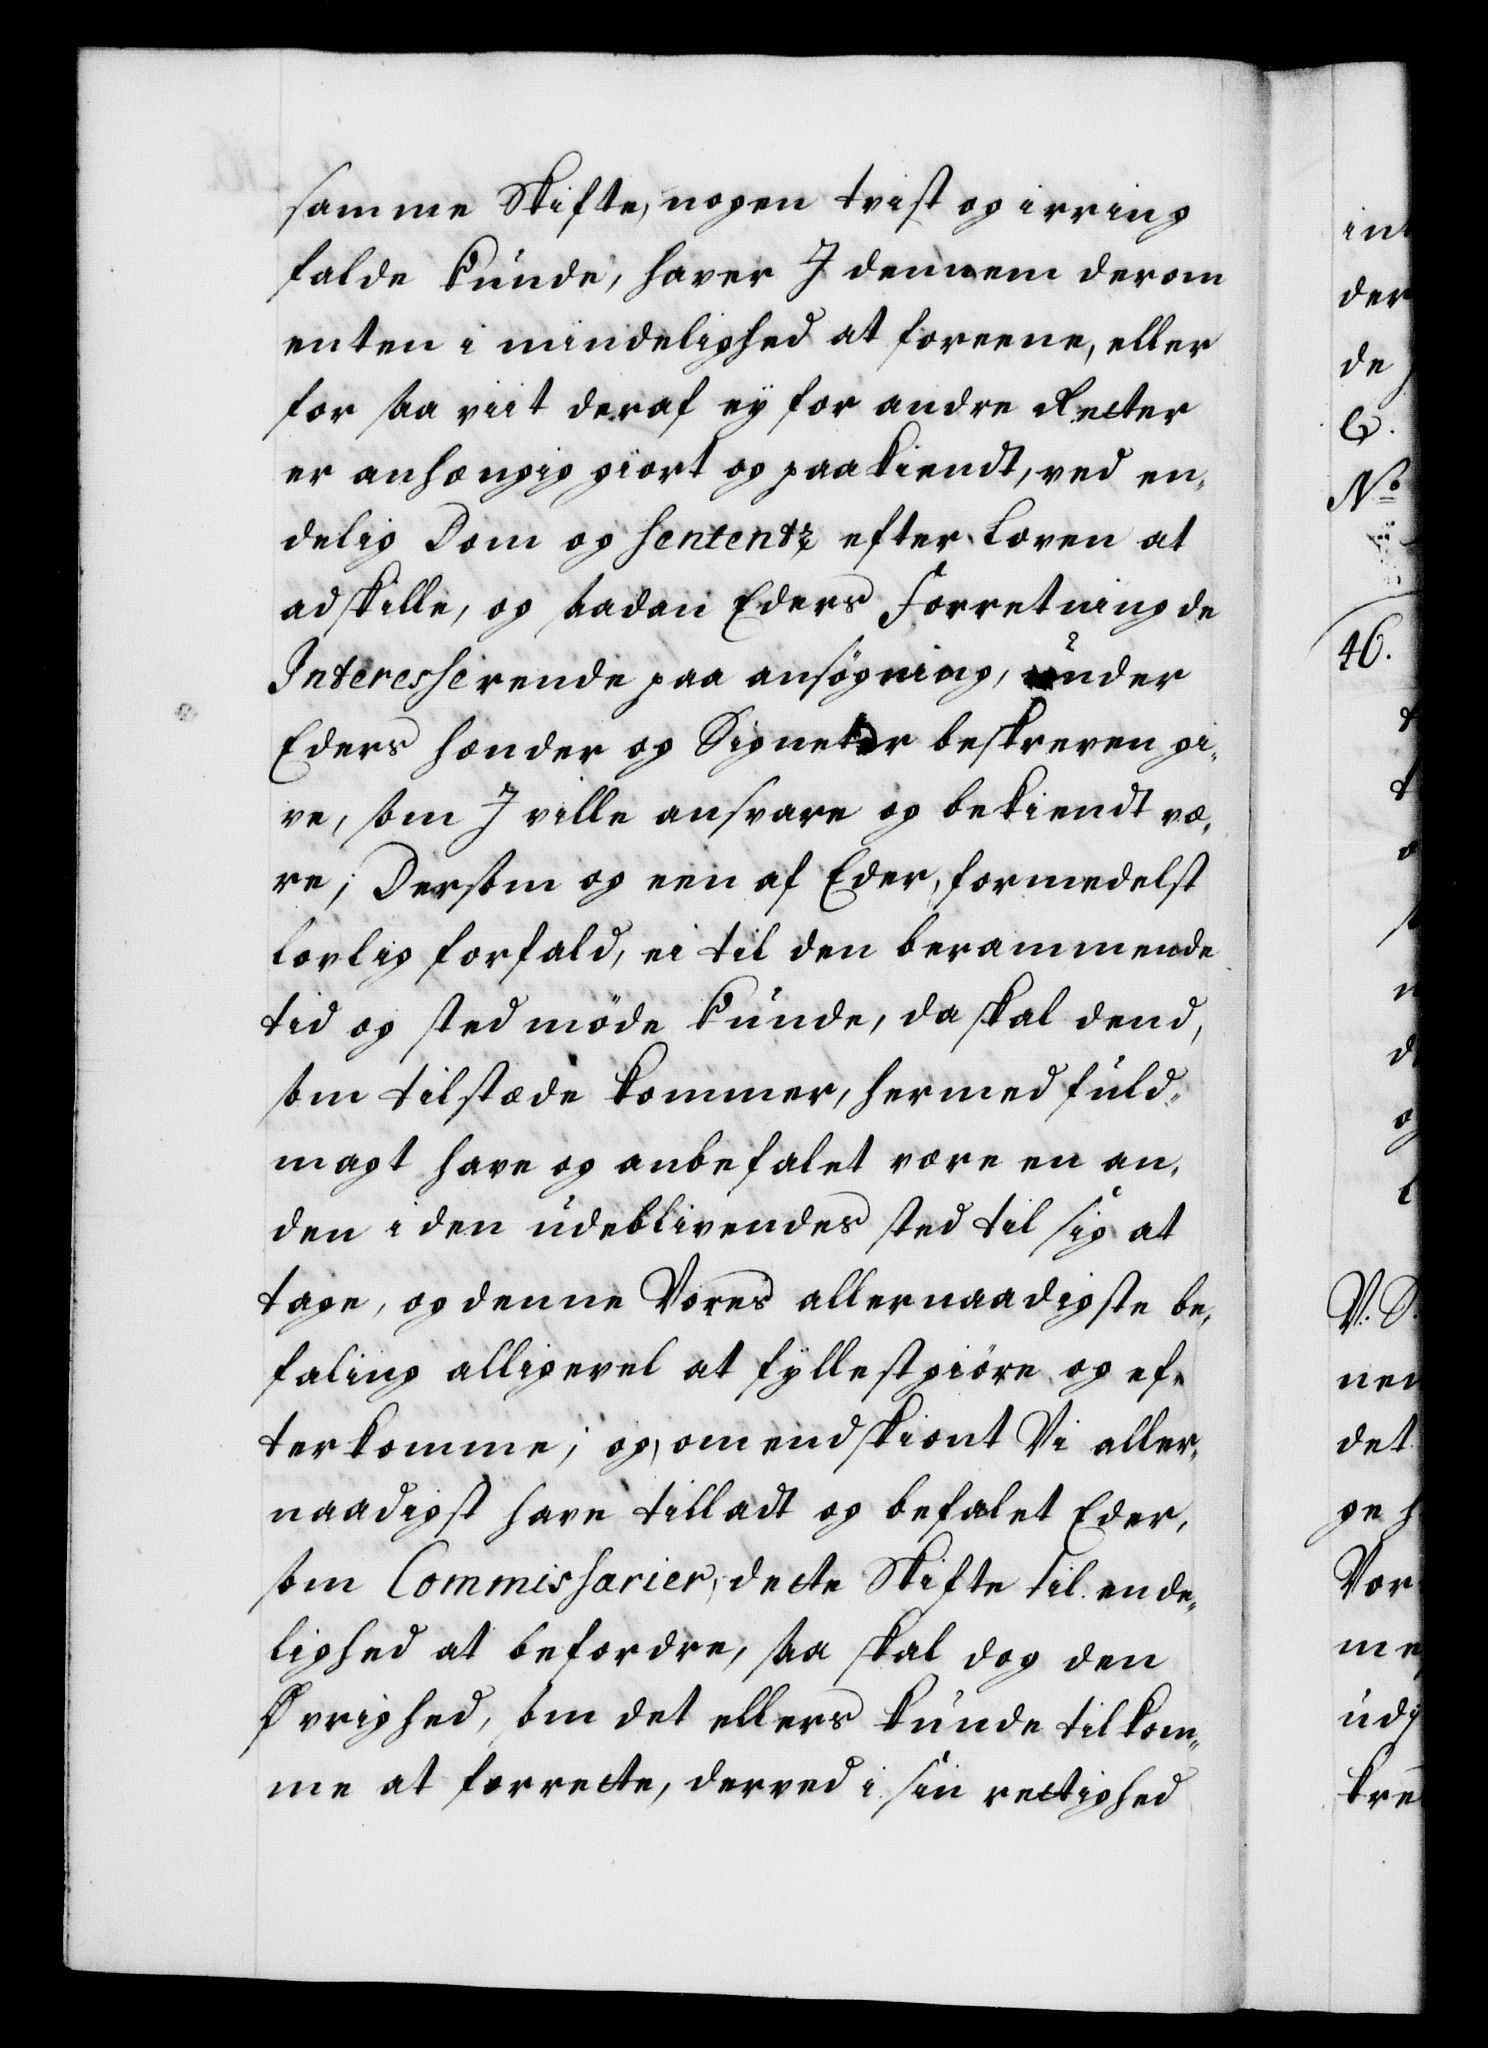 samme Skifte, nogen tvist og irring
falde kunde, haver I dennem derom
enten i mindelighed at foreene, eller
for saa viit deraf ey for andre Retter
er anhængig giort og paakiendt, ved en„
delig Dom og Sententz efter Loven at
adskille, og saadan Eders Forretning de
Interesserende paa ansøgning, under
Eders hænder og Signeter beskreven gi„
ve, som I ville ansvare og bekiendt væ„
re; Dersom og een af Eder, formedelst
lovlig forfald, ei til den berammende
tid og sted møde kunde, da skal dend,
som tilstæde kommer, hermed fuld„
magt have og anbefalet være en an„
den i den udeblivendes sted til sig at
tage, og denne Vores allernaadigste be„
faling alligevel at fyllestgiøre og ef„
terkomme; og, omendskiønt Vi aller„
naadigst have tilladt og befalet Eder,
som Commissarier, dette Skifte til ende„
lighed at befordre, saa skal dog den
Øvrighed, som det ellers kunde tilkom„
me at forrette, derved i sin rettighed
in
der
de
G.
No
46.
V. S.
det
ge h
Vor
me
udg
kre